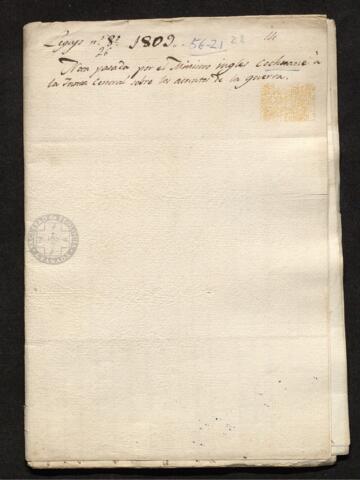 Legajo nº 8º 1809. 56-21 22
26
Nota pasada por el Ministro ingles Cochrane à
la Junta Central sobre los asuntos de la guerra.